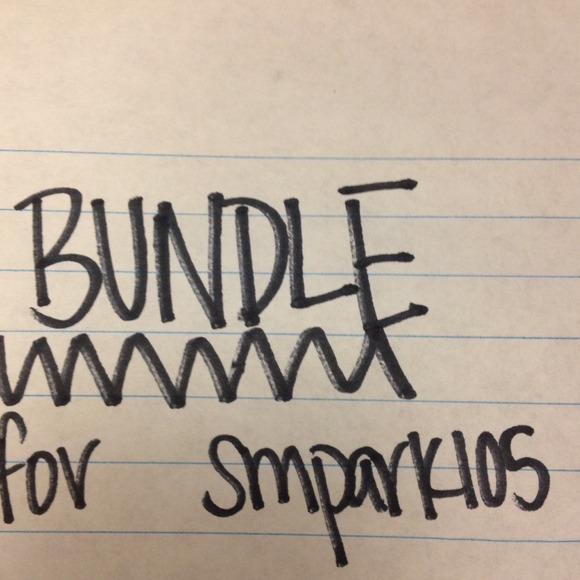 BUNDLE
for smpark105